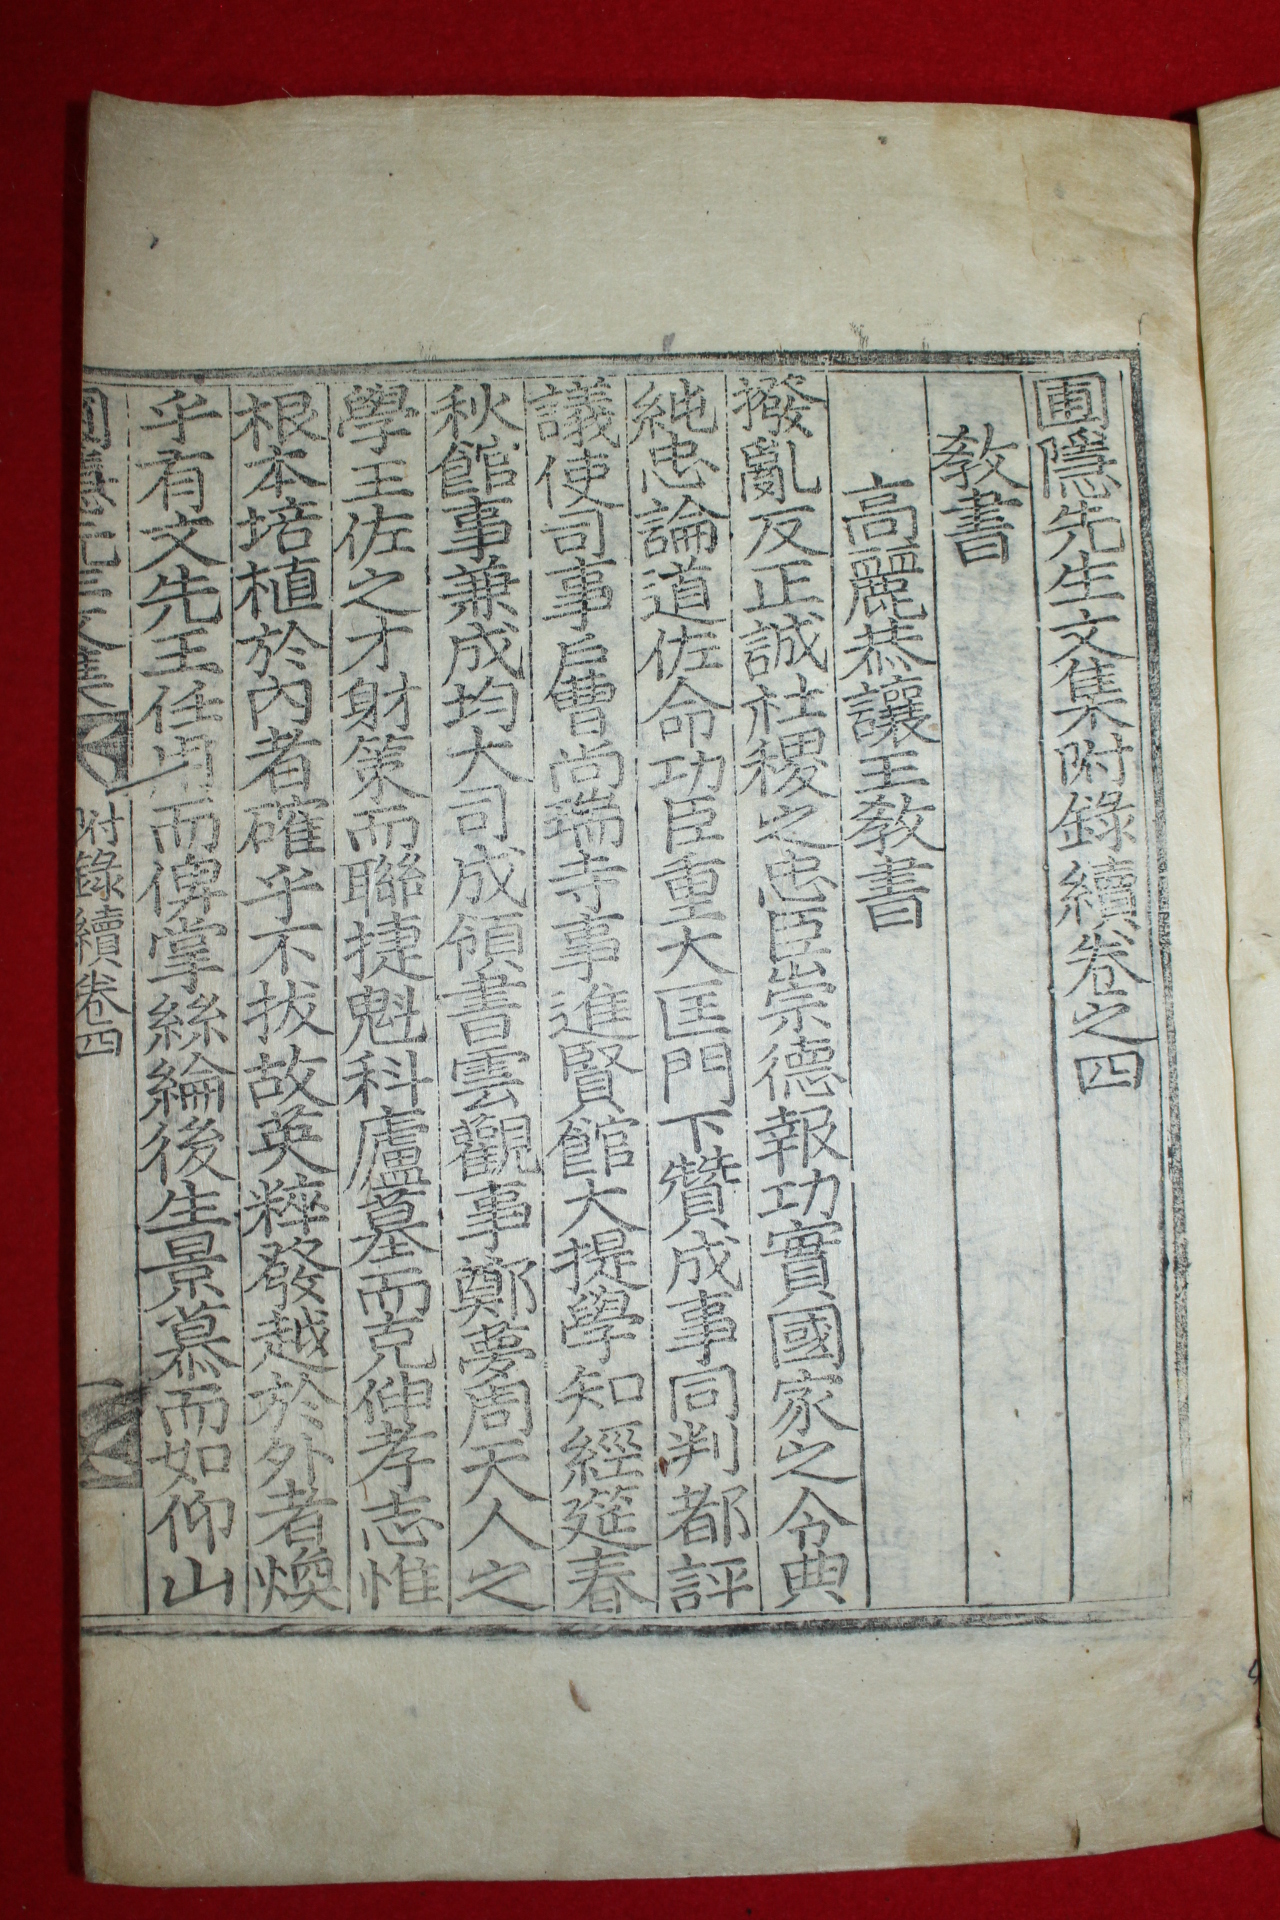 圃隱先生文集附錄續卷之四
敎書
高麗恭讓王敎書
撥亂反正誠社稷之忠臣崇德報功實國家之令典
純忠論道佐命功臣重大匡門下贊成事同判都評
議使司事戶曹尙瑞寺事進賢館大提學知經筵春
秋館事兼成均大司成領書雲觀事鄭夢周天人之
學王佐之才財策而聯捷魁科廬墓而克伸孝志惟
根本培植於內者確乎不拔故英粹發越於外者煥
乎有文先王任用而俾掌絲綸後生景慕而如仰山
圃隱先生文集 附錄續卷四 一